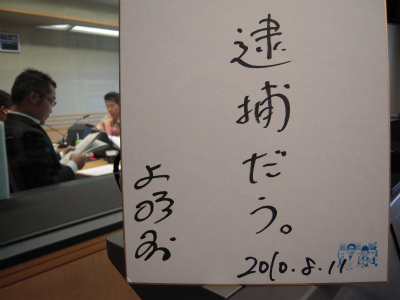 逮捕だう。
よのみ
2010.8.11